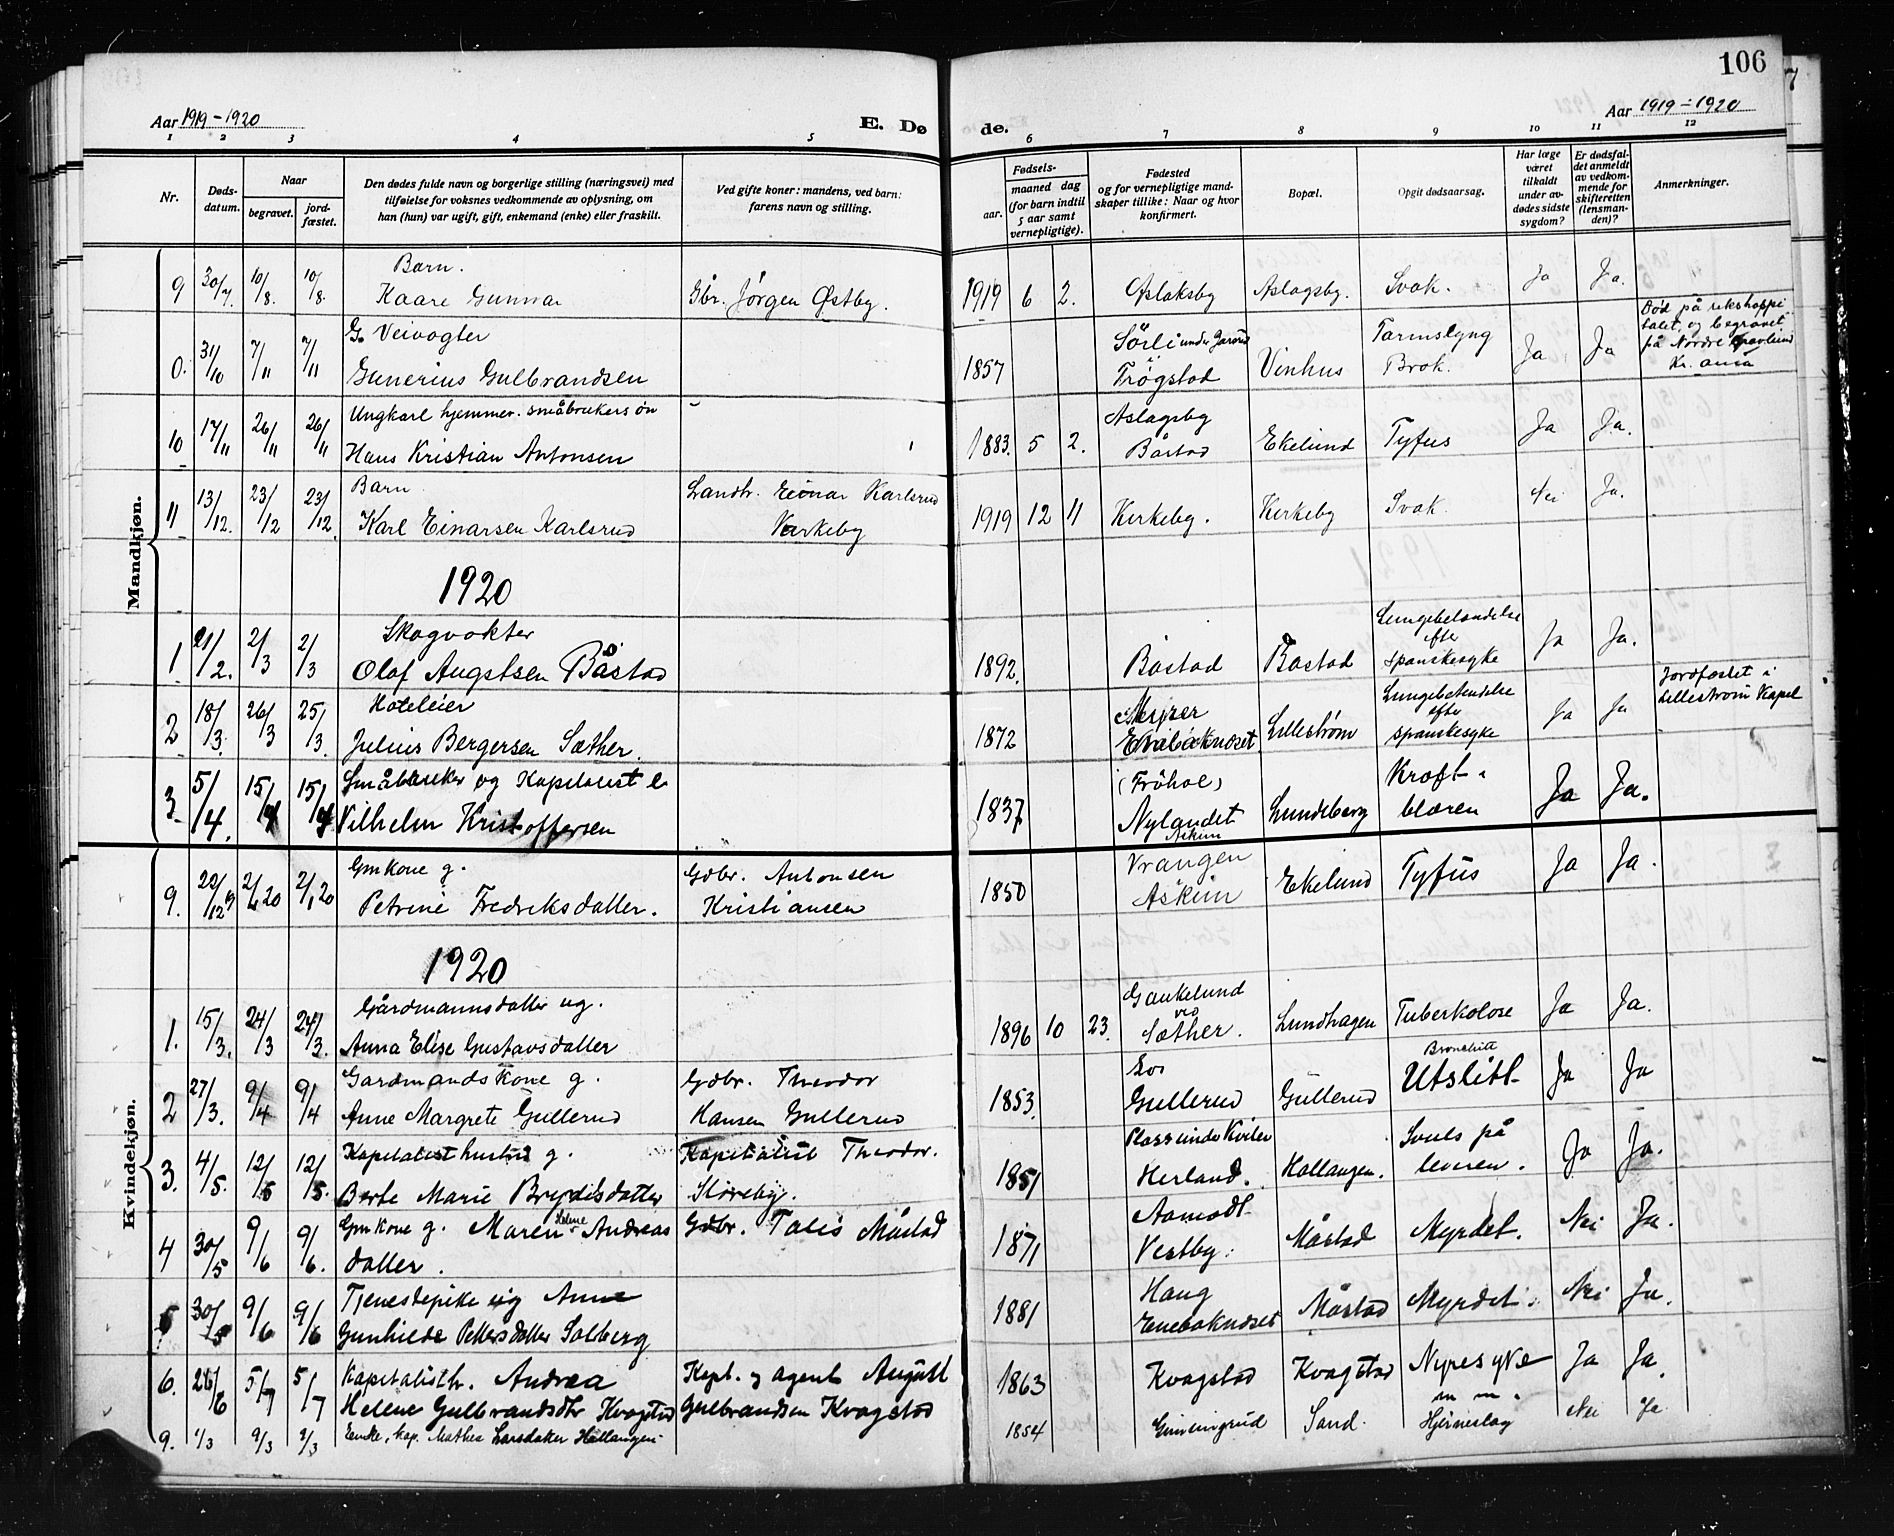 106
Aar 1919-1920
E. Dø
de.
Aar 1919-1920
1 2 3 4 5 6 7 8 9 10 11 12
Nr.
Døds-
datum.
Naar
begravet.
jord-
fæstet.
Den dødes fulde navn og borgerlige stilling (næringsvei) med
tilføielse for voksnes vedkommende av oplysning, om
han (hun) var ugift, gift, enkemand (enke) eller fraskilt.
Ved gifte koner: mandens, ved barn:
farens navn og stilling.
Fødsels-
aar.
maaned dag
(for barn indtil
5 aar samt
vernepligtige).
Fødested
og for vernepligtige mand-
skaper tillike: Naar og hvor
konfirmert.
Bopæl.
Opgit dødsaarsag.
Har læge
været
tilkaldt
under av-
dødes sidste
sygdom?
Er dødsfal-
det anmeldt
av vedkom-
mende for
skifteretten
(lensman-
den)?
Anmerkninger.
Mandkjøn.
Barn.
9 30/7. 10/8. 10/8. Kaare Gunnar Gbr. Jörgen Østby. 1919 6 2. Aslaksby Aslagsby. Svak. Ja Ja.
G. Veivogter
0. 31/10 7/11 7/11 Gunerius Gulbrandsen 1857 Sörli under
Trögstad Vinhus Tarmslyng
Brok. Ja Ja
Död på rikshospi
talet, og begravet
på Nordre Gravlund
Kr. ania
Ungkarl hjemmev. småbrukersøn
10 17/11 26/11 26/11 Hans Kristian Antonsen 1883. 5 2. Aslagsby
Båstad Ekelund Tyfus Ja Ja.
Barn
11 13/12. 23/12 23/12. Karl Einarsen Karlsrud Landh. Einar Karlsrud
Kirkeby 1919 12 11 Kirkeby. Kirkeby Svak. Nei Ja.
1920
Skogvokter
1 21/2. 2/3 2/3 Olaf Augstsen Båstad 1892. Båstad Båstad Lungebetændelse
efter
spanskesyke Ja Ja.
Hoteleier
2 18/3. 26/3 25/3. Julius Bergersen Sæther. 1872
Enebaknæset Lillestrøm Lungebetendelse
efter
spanskesyke Ja Ja
Jordfæstet i
Lillestrøm Kapel
Småbruker og Kapitalist e
3. 5/4. 15/4 15/4 Vilhelm Kristoffersen 1837 (Fröhol)
Nylandet
Askim Lundeberg Kræft i
blæren Ja Ja.
Kvindekjøn.
Gmkone g.
9. 20/12 19 2/1 20 2/1 20 Petrine Fredriksdatter. Gdbr. Antonsen
Kristiansen 1850 Vrangen
Askim Ekelund Tyfus Ja Ja.
1920
Gårdmannsdatter ug.
1. 15/3. 24/3 24/3. Anna Elise Gustavsdatter 1896 10 23. Gaukelund
ved
Sæther. Lundhagen Tuberkolose Ja Ja.
Gardmandskone g.
2 27/3. 9/4 9/4 Anne Margrete Gullerud Gdbr. Theodor
Hansen Gullerud 1853.
Gullerud Gullerud Bronchitt
Utslitt Ja Ja
Kapitalisthustru g.
3. 4/5. 12/5 12/5. Berte Marie Brynildsdatter Kapitalist Theodor.
Støreby. 1851 Plass under
Herland. Hollangen. Svuls på
leveren. Ja Ja.
4 30/5 9/6 9/6. Gmkone g. Maren Helene Andreas
datter. Gdbr. Måstad 1871 Aamodt
Vestby. Måstad Myrdet. Nei Ja.
5 30/5 9/6 9/6 Tjenestepike ug Anne
Gunhilde Pettersdatter Solberg 1881 Haug
Enebaknæset Måstad Myrdet. Nei Ja.
6. 26/6 5/7 5/7 Kapitalisth. Andrea
Helene Gulbrandsdtr Kvagstad Kapt. og agent August
Gulbrandsen Kvagstad 1863 Kvagstad Kvagstad Nyresyke
m m. Ja Ja.
9. 1/3 9/3 9/3 Enke, kap. Mathea Larsdatter Hollangen 1854 Gimmingrud Sand. Hjerneslag Nei Ja.